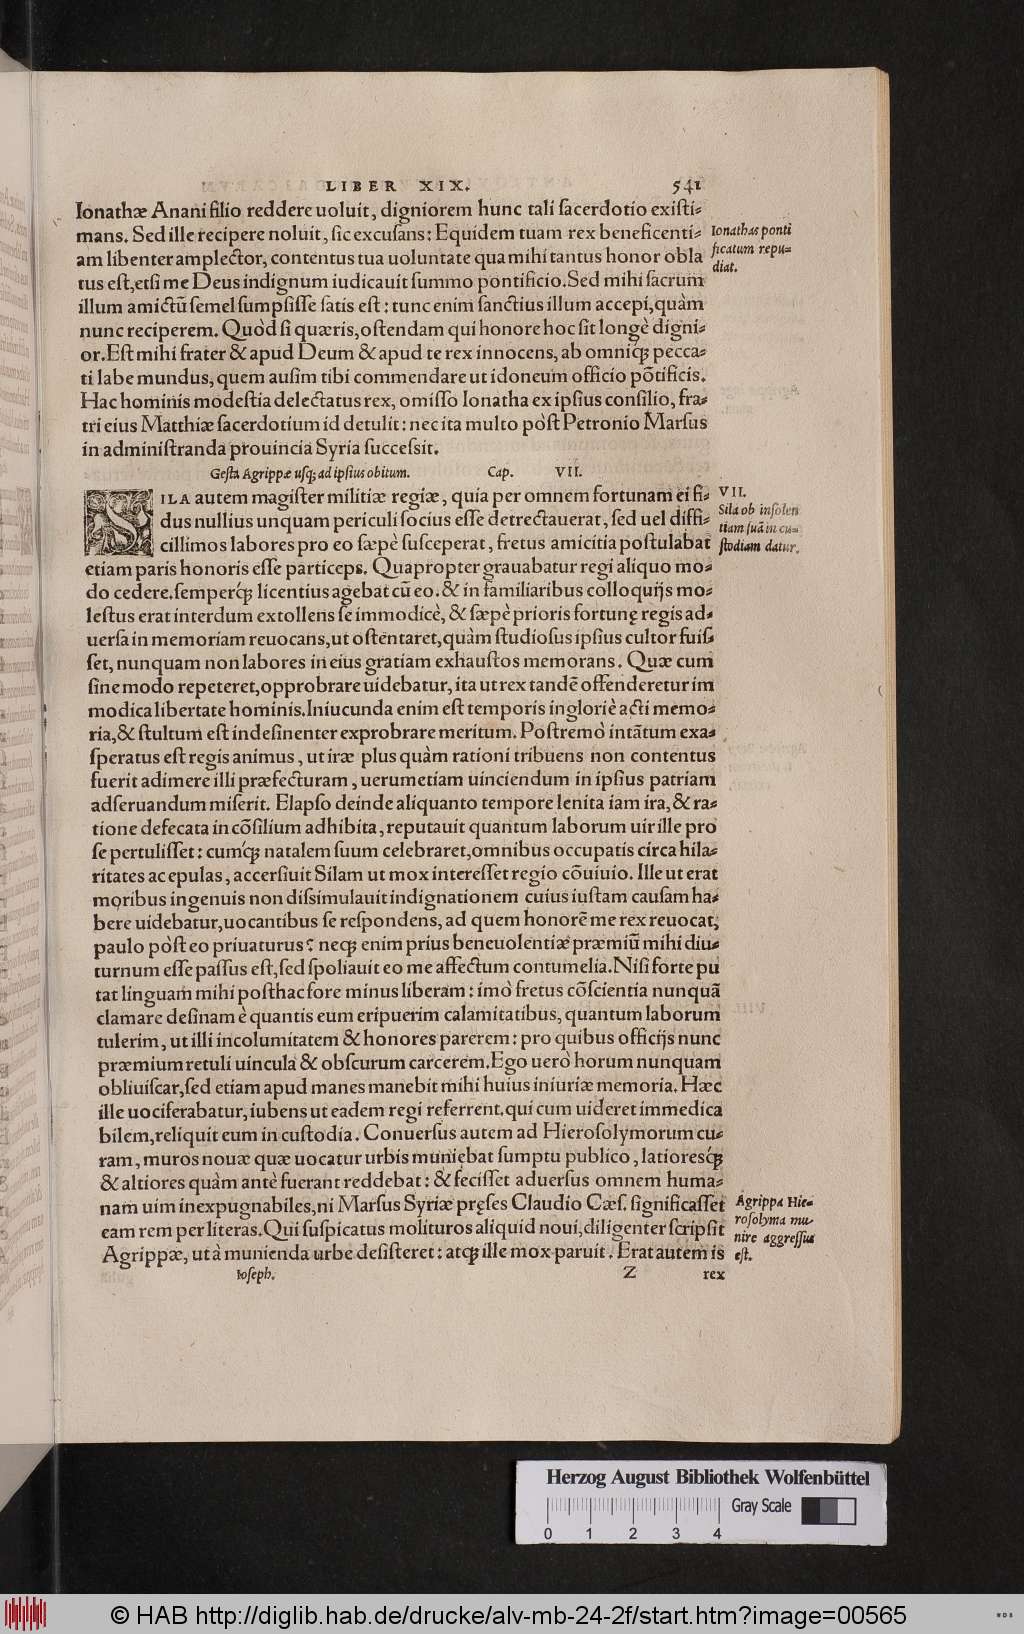 LIBER XIX. 541
Ionathæ Anani filio reddere uoluit, digniorem hunc tali sacerdotio existi=
mans. Sed ille recipere noluit, sic excusans: Equidem tuam rex beneficenti=
am libenter amplector, contentus tua uoluntate qua mihi tantus honor obla
tus est, etsi me Deus indignum iudicauit summo pontificio. Sed mihi sacrum
illum amictũ semel sumpsisse satis est: tunc enim sanctius illum accepi, quàm
nunc reciperem. Quòd si quæris, ostendam qui honore hoc sit longè digni=
or. Est mihi frater & apud Deum & apud te rex innocens, ab omniq́ꝫ pecca=
ti labe mundus, quem ausim tibi commendare ut idoneum officio põtificis.
Hac hominis modestia delectatus rex, omisso Ionatha ex ipsius consilio, fra=
tri eius Matthiæ sacerdotium id detulit: nec ita multo pòst Petronio Marsus
in administranda prouincia Syria successit.
Ionathas ponti
ficatum repu=
diat.
Gesta Agrippæ usqꝫ ad ipsius obitum. Cap. VII.
SILA autem magister militiæ regiæ, quia per omnem fortunam ei fi=
dus nullius unquam periculi socius esse detrectauerat, sed uel diffi=
cillimos labores pro eo sæpè susceperat, fretus amicitia postulabat
etiam paris honoris esse particeps. Quapropter grauabatur regi aliquo mo=
do cedere. semperq́ꝫ licentius agebat cũ eo. & in familiaribus colloquijs mo=
lestus erat interdum extollens se immodicè, & sæpè prioris fortunę regis ad=
uersa in memoriam reuocans, ut ostentaret, quàm studiosus ipsius cultor fuis=
set, nunquam non labores in eius gratiam exhaustos memorans. Quæ cum
sine modo repeteret, opprobrare uidebatur, ita ut rex tandẽ offenderetur im
modica libertate hominis. Iniucunda enim est temporis ingloriè acti memo=
ria, & stultum est indesinenter exprobrare meritum. Postremò intãtum exa=
speratus est regis animus, ut iræ plus quàm rationi tribuens non contentus
fuerit adimere illi præfecturam, uerumetiam uinciendum in ipsius patriam
adseruandum miserit. Elapso deinde aliquanto tempore lenita iam ira, & ra=
tione defecata in cõsilium adhibita, reputauit quantum laborum uir ille pro
se pertulisset: cumq́ꝫ natalem suum celebraret, omnibus occupatis circa hila=
ritates ac epulas, accersiuit Silam ut mox interesset regio cõuiuio. Ille ut erat
moribus ingenuis non dissimulauit indignationem cuius iustam causam ha=
bere uidebatur, uocantibus se respondens, ad quem honorẽ me rex reuocat,
paulo pòst eo priuaturus? neqꝫ enim prius beneuolentiæ præmiũ mihi diu=
turnum esse passus est, sed spoliauit eo me affectum contumelia. Nisi forte pu
tat linguam mihi posthac fore minus liberam: imò fretus cõscientia nunquã
clamare desinam è quantis eum eripuerim calamitatibus, quantum laborum
tulerim, ut illi incolumitatem & honores parerem: pro quibus officijs nunc
præmium retuli uincula & obscurum carcerem. Ego uerò horum nunquam
obliuiscar, sed etiam apud manes manebit mihi huius iniuriæ memoria. Hæc
ille uociferabatur, iubens ut eadem regi referrent. qui cum uideret immedica
bilem, reliquit eum in custodia. Conuersus autem ad Hierosolymorum cu=
ram, muros nouæ quæ uocatur urbis muniebat sumptu publico, latioresq́ꝫ
& altiores quàm antè fuerant reddebat: & fecisset aduersus omnem huma=
nam uim inexpugnabiles, ni Marsus Syriæ pręses Claudio Cæs. significasset
eam rem per literas. Qui suspicatus molituros aliquid noui, diligenter scripsit
Agrippæ, ut à munienda urbe desisteret: atqꝫ ille mox paruit. Erat autem is
VII.
Sila ob insolen
tiam suã in cu=
stodiam datur.
Agrippa Hie=
rosolyma mu=
nire aggressus
est.
Ioseph. Z rex
Herzog August Bibliothek Wolfenbüttel
Gray Scale
0 1 2 3 4
© HAB http://diglib.hab.de/drucke/alv-mb-24-2f/start.htm?image=00565